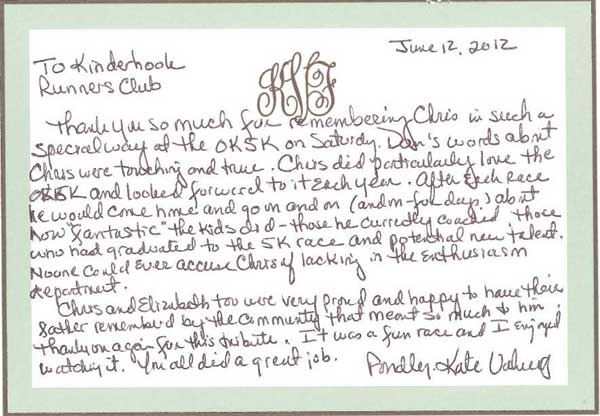 June 12, 2012
To Kinderhook
Runners Club
Thank you so much for remembering Chris in such a
special way at the OK5K on Saturday. Dan's words about
Chris were touching and true. Chris did particularly love the
OK5K and looked forward to it each year. After each race
he would come home and go on and on (and on - for days) about
how "fantastic" the kids did - those he currently coached those
who had graduated to the 5K race and potential new talent.
Noone could ever accuse Chris of lacking in the enthusiasm
department.
Chris and Elizabeth too were very proud and happy to have their
father remembered by the community that meant so much to him.
Thank you again for this tribute. It was a fun race and I enjoyed
watching it. You all did a great job.
Kate